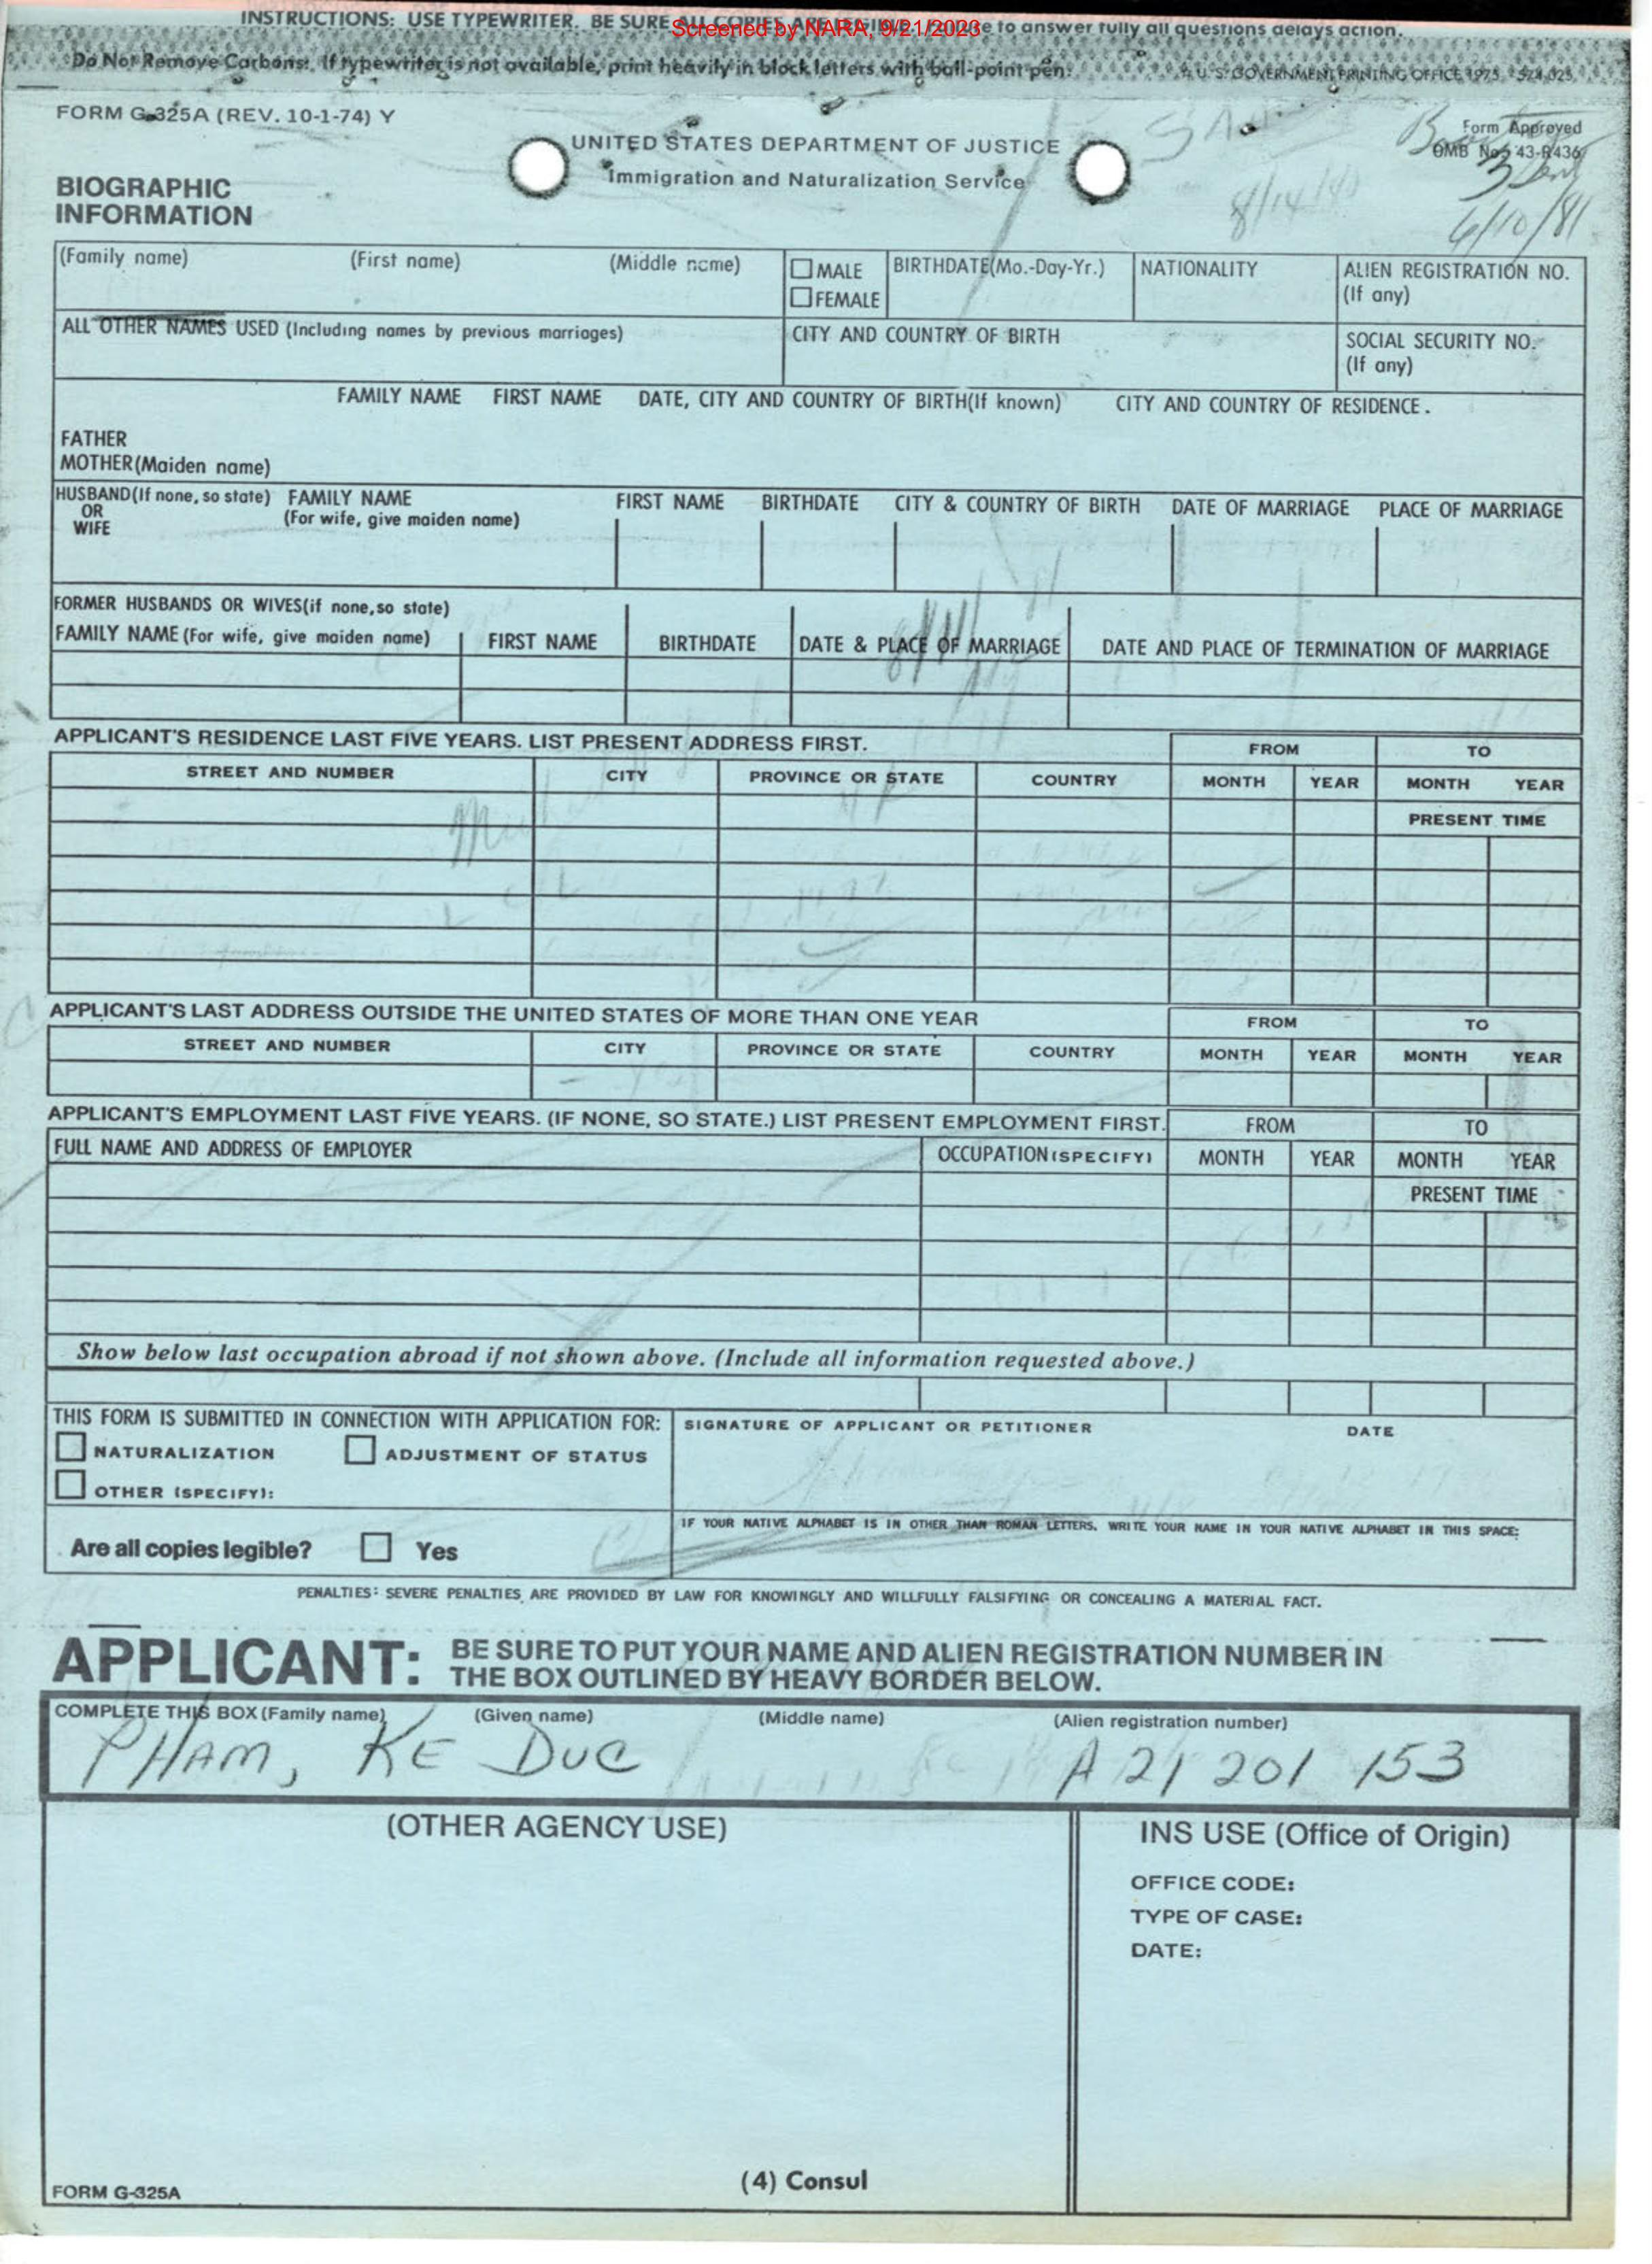 INSTRUCTIONS: USE TYPEWRITER. BE SURE ALL COPIES ARE to answer fully all questions delays action.
Screened by NARA, 9/21/2023
Do Not Remove Carbons. If typewriter is not available, print heavily in block letters with ball-point pen.
U.S. GOVERNMENT PRINTING OFFICE 1975
FORM G-325A (REV. 10-1-74) Y
UNITED STATES DEPARTMENT OF JUSTICE
Immigration and Naturalization Service
Form Approved
OMB No. 43-R436
8/14/
6/10/81
BIOGRAPHIC
INFORMATION
(Family name) (First name) (Middle name) MALE BIRTHDATE(Mo.-Day-Yr.) NATIONALITY ALIEN REGISTRATION NO.
FEMALE (If any)
ALL OTHER NAMES USED (Including names by previous marriages) CITY AND COUNTRY OF BIRTH SOCIAL SECURITY NO.
(If any)
FAMILY NAME FIRST NAME DATE, CITY AND COUNTRY OF BIRTH(If known) CITY AND COUNTRY OF RESIDENCE.
FATHER
MOTHER(Maiden name)
HUSBAND(If none, so state) FAMILY NAME FIRST NAME BIRTHDATE CITY & COUNTRY OF BIRTH DATE OF MARRIAGE PLACE OF MARRIAGE
OR (For wife, give maiden name)
WIFE
FORMER HUSBANDS OR WIVES(if none,so state)
FAMILY NAME (For wife, give maiden name) FIRST NAME BIRTHDATE DATE & PLACE OF MARRIAGE DATE AND PLACE OF TERMINATION OF MARRIAGE
APPLICANT'S RESIDENCE LAST FIVE YEARS. LIST PRESENT ADDRESS FIRST. FROM TO
STREET AND NUMBER CITY PROVINCE OR STATE COUNTRY MONTH YEAR MONTH YEAR
PRESENT TIME
APPLICANT'S LAST ADDRESS OUTSIDE THE UNITED STATES OF MORE THAN ONE YEAR FROM TO
STREET AND NUMBER CITY PROVINCE OR STATE COUNTRY MONTH YEAR MONTH YEAR
APPLICANT'S EMPLOYMENT LAST FIVE YEARS. (IF NONE, SO STATE.) LIST PRESENT EMPLOYMENT FIRST. FROM TO
FULL NAME AND ADDRESS OF EMPLOYER OCCUPATION(SPECIFY) MONTH YEAR MONTH YEAR
PRESENT TIME
Show below last occupation abroad if not shown above. (Include all information requested above.)
THIS FORM IS SUBMITTED IN CONNECTION WITH APPLICATION FOR: SIGNATURE OF APPLICANT OR PETITIONER DATE
NATURALIZATION ADJUSTMENT OF STATUS
OTHER (SPECIFY):
IF YOUR NATIVE ALPHABET IS IN OTHER THAN ROMAN LETTERS, WRITE YOUR NAME IN YOUR NATIVE ALPHABET IN THIS SPACE:
Are all copies legible? Yes
PENALTIES: SEVERE PENALTIES ARE PROVIDED BY LAW FOR KNOWINGLY AND WILLFULLY FALSIFYING OR CONCEALING A MATERIAL FACT.
APPLICANT: BE SURE TO PUT YOUR NAME AND ALIEN REGISTRATION NUMBER IN
THE BOX OUTLINED BY HEAVY BORDER BELOW.
COMPLETE THIS BOX (Family name) (Given name) (Middle name) (Alien registration number)
PHAM, KE DUC A 21 201 153
(OTHER AGENCY USE) INS USE (Office of Origin)
OFFICE CODE:
TYPE OF CASE:
DATE:
(4) Consul
FORM G-325A